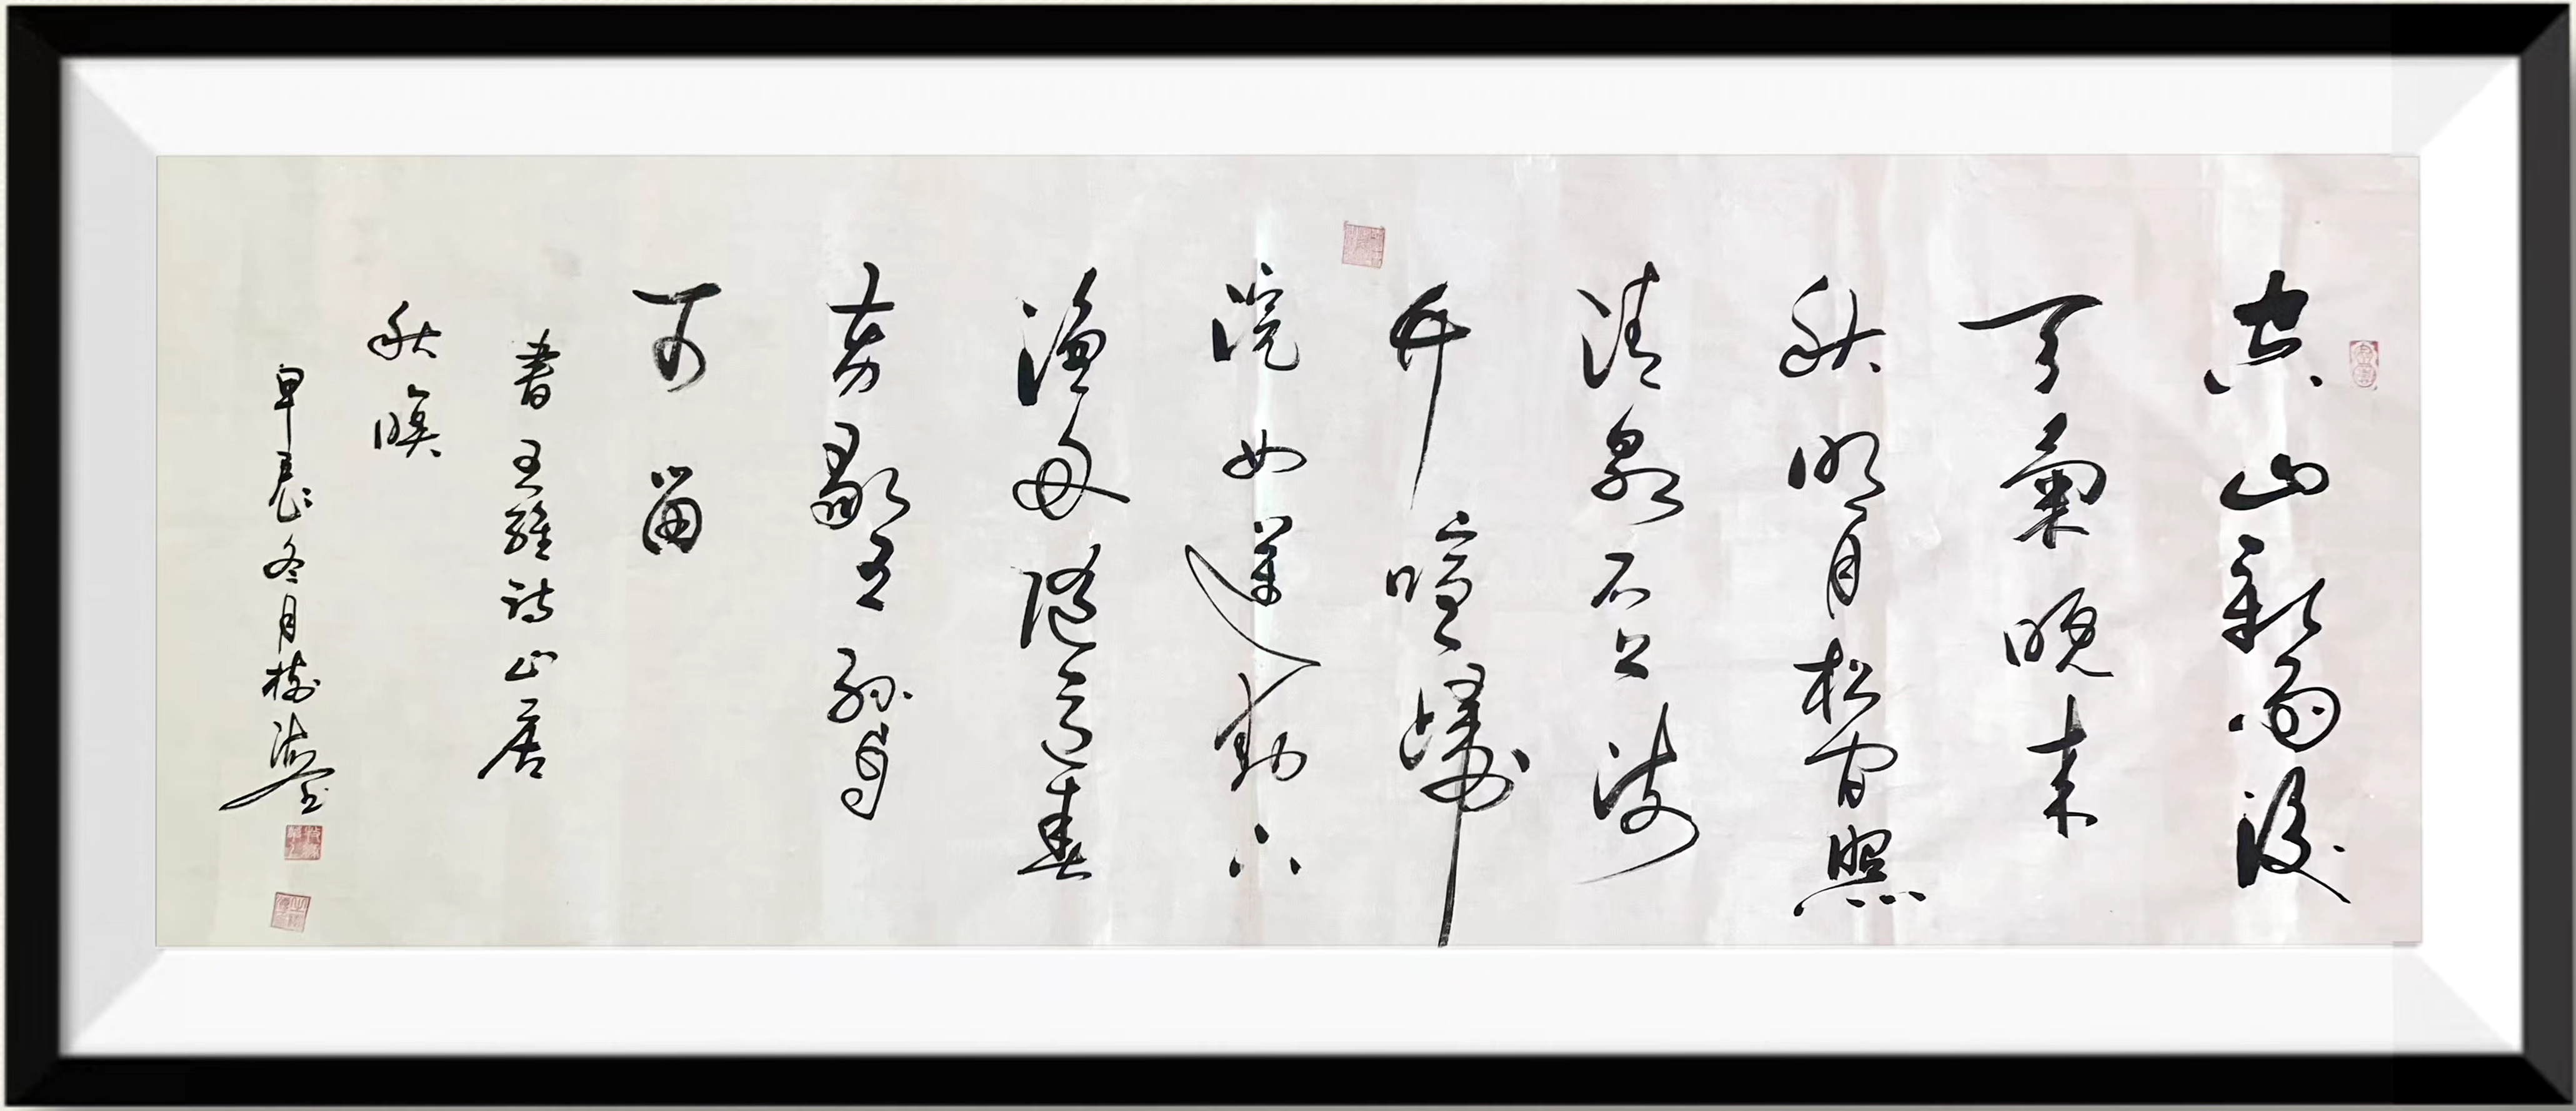 空山新雨後
天氣晚来
秋明月松間照
清泉石上流
竹喧歸
浣女蓮動下
漁舟隨意春
芳歇王孫自
可留
書王維詩山居
秋暝
甲辰冬月樹